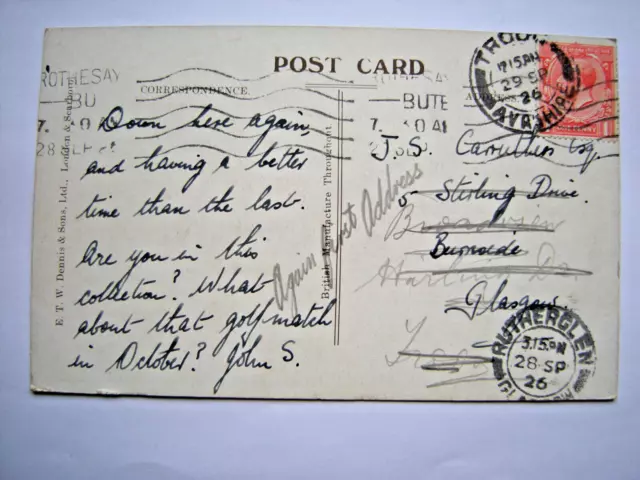 POST CARD
ROTHESAY
BU
7. 0
28 SEP 26
CORRESPONDENCE.
BUTE
7. 30 AM
TROON
12 15 PM
29 SP
26
AYRSHIRE
Down here again
and having a better
time than the last.
Are you in this
collection? What
about that golf match
in October? John S.
E. T. W. Dennis & Sons, Ltd., London & Scarboro'
British Manufacture Throughout
Again First Address
J. S. Carruthers Esq.
5 Stirling Drive.
Broadview
Burnside
Harling
Glasgow
Troon
RUTHERGLEN
3.15 PM
28 SP
26
GLASGOW